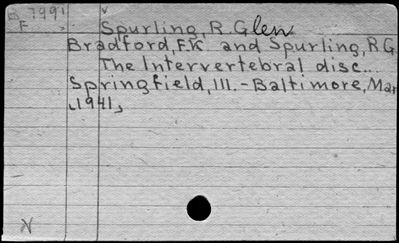 B 7991
F
Spurling, R. Glen
Bradford, F.K. and Spurling, R.G
The Intervertebral disc...
Springfield, Ill. - Baltimore, Mar
1941,